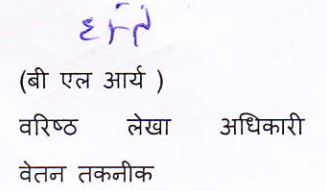 (बी एल आर्य )
वरिष्ठ लेखा अधिकारी
वेतन तकनीक